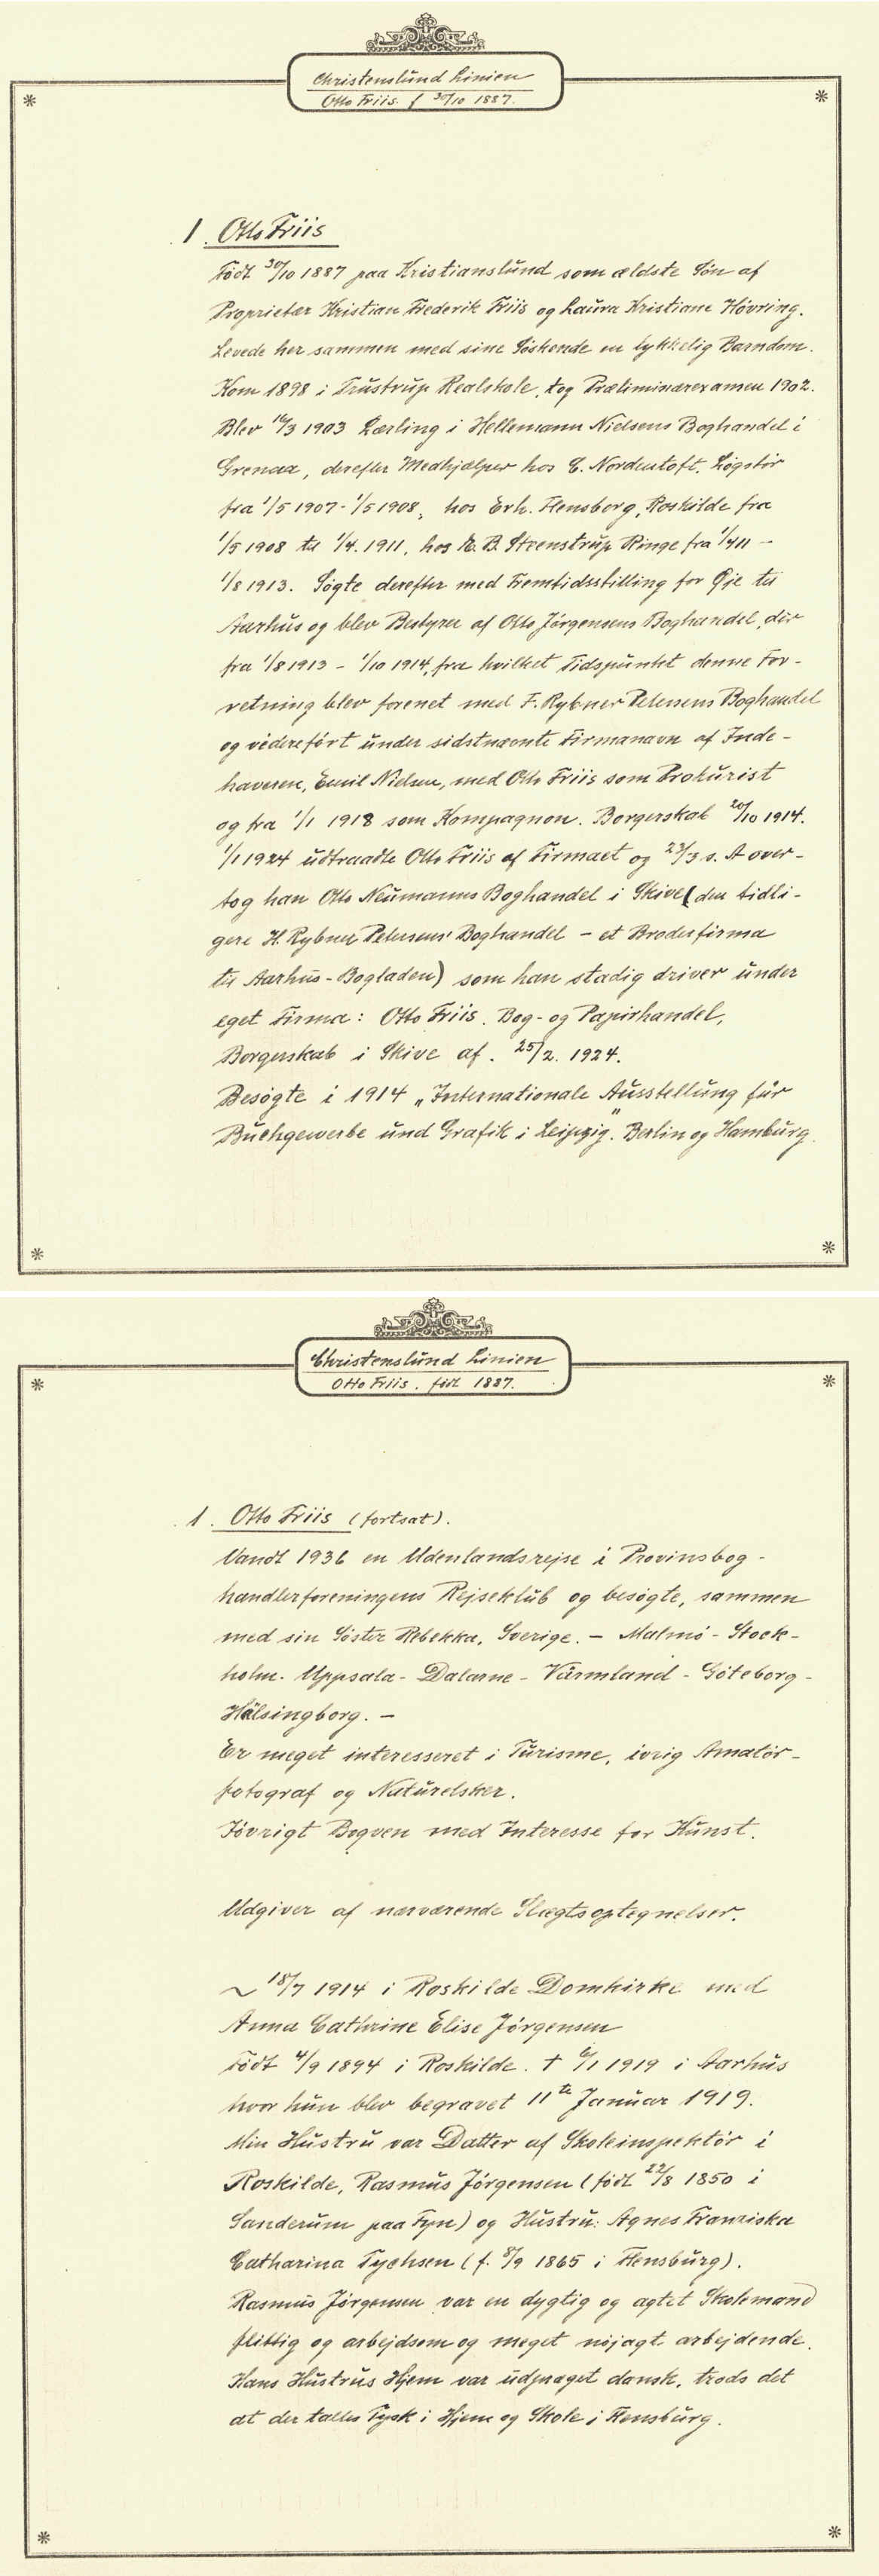 Christenslund Linien
Otto Friis. f 30/10 1887.
1. Otto Friis
Født 30/10 1887 paa Kristianslund som ældste Søn af
Proprietær Kristian Frederik Friis og Laura Kristiane Høvring.
Levede her sammen med sine Søskende en lykkelig Barndom.
Kom 1898 i Trustrup Realskole, tog Præliminærexamen 1902.
Blev 16/3 1903 Lærling i Hellemann Nielsens Boghandel i
Grenaa, derefter Medhjælper hos C. Nordentoft. Løgstør
fra 1/5 1907 - 1/5 1908, hos Erh. Flensborg, Roskilde fra
1/5 1908 til 1/4. 1911, hos B. Steenstrup Ringe fra 1/4 11 -
1/8 1913. Søgte derefter med Fremtidsstilling for Øje til
Aarhus og blev Bestyrer af Otto Jørgensens Boghandel, dér
fra 1/8 1913 - 1/10 1914, fra hvilket Tidspunkt denne For-
retning blev forenet med F. Rybner Petersens Boghandel
og videreført under sidstnævnte Firmanavn af Inde-
haveren, Emil Nielsen, med Otto Friis som Prokurist
og fra 1/1 1918 som Kompagnon. Borgerskab 20/10 1914.
1/1 1924 udtraadte Otto Friis af Firmaet og 23/3 s. A over-
tog han Otto Neumanns Boghandel i Skive (den tidli-
gere H. Rybner Petersens' Boghandel - et Broderfirma
til Aarhus-Bogladen) som han stadig driver under
eget Firma: Otto Friis. Bog- og Papirhandel,
Borgerskab i Skive af. 25/2. 1924.
Besøgte i 1914 „Internationale Ausstellung für
Buchgewerbe und Grafik i Leipzig." Berlin og Hamburg.
Christenslund Linien
Otto Friis. født 1887.
1. Otto Friis (fortsat).
Vandt 1936 en Udenlandsrejse i Provinsbog-
handlerforeningens Rejseklub og besøgte, sammen
med sin Søster Rebekka, Sverige. - Malmö - Stock-
holm. Uppsala - Dalarne - Värmland - Göteborg -
Hälsingborg. -
Er meget interesseret i Turisme, ivrig Amatør-
fotograf og Naturelsker.
Iøvrigt Bogven med Interesse for Kunst.
Udgiver af nærværende Slægtsoptegnelser.
~ 18/7 1914 i Roskilde Domkirke med
Anna Cathrine Elise Jørgensen
Født 4/9 1894 i Roskilde. † 6/1 1919 i Aarhus
hvor hun blev begravet 11te Januar 1919.
Min Hustru var Datter af Skoleinspektør i
Roskilde, Rasmus Jørgensen (født 22/8 1850 i
Sanderum paa Fyn) og Hustru: Agnes Franziska
Catharina Tychsen (f. 8/9 1865 i Flensburg).
Rasmus Jørgensen var en dygtig og agtet Skolemand
flittig og arbejdsom og meget nøjagt arbejdende.
Hans Hustrus Hjem var udpræget dansk, trods det
at der taltes Tysk i Hjem og Skole i Flensburg.